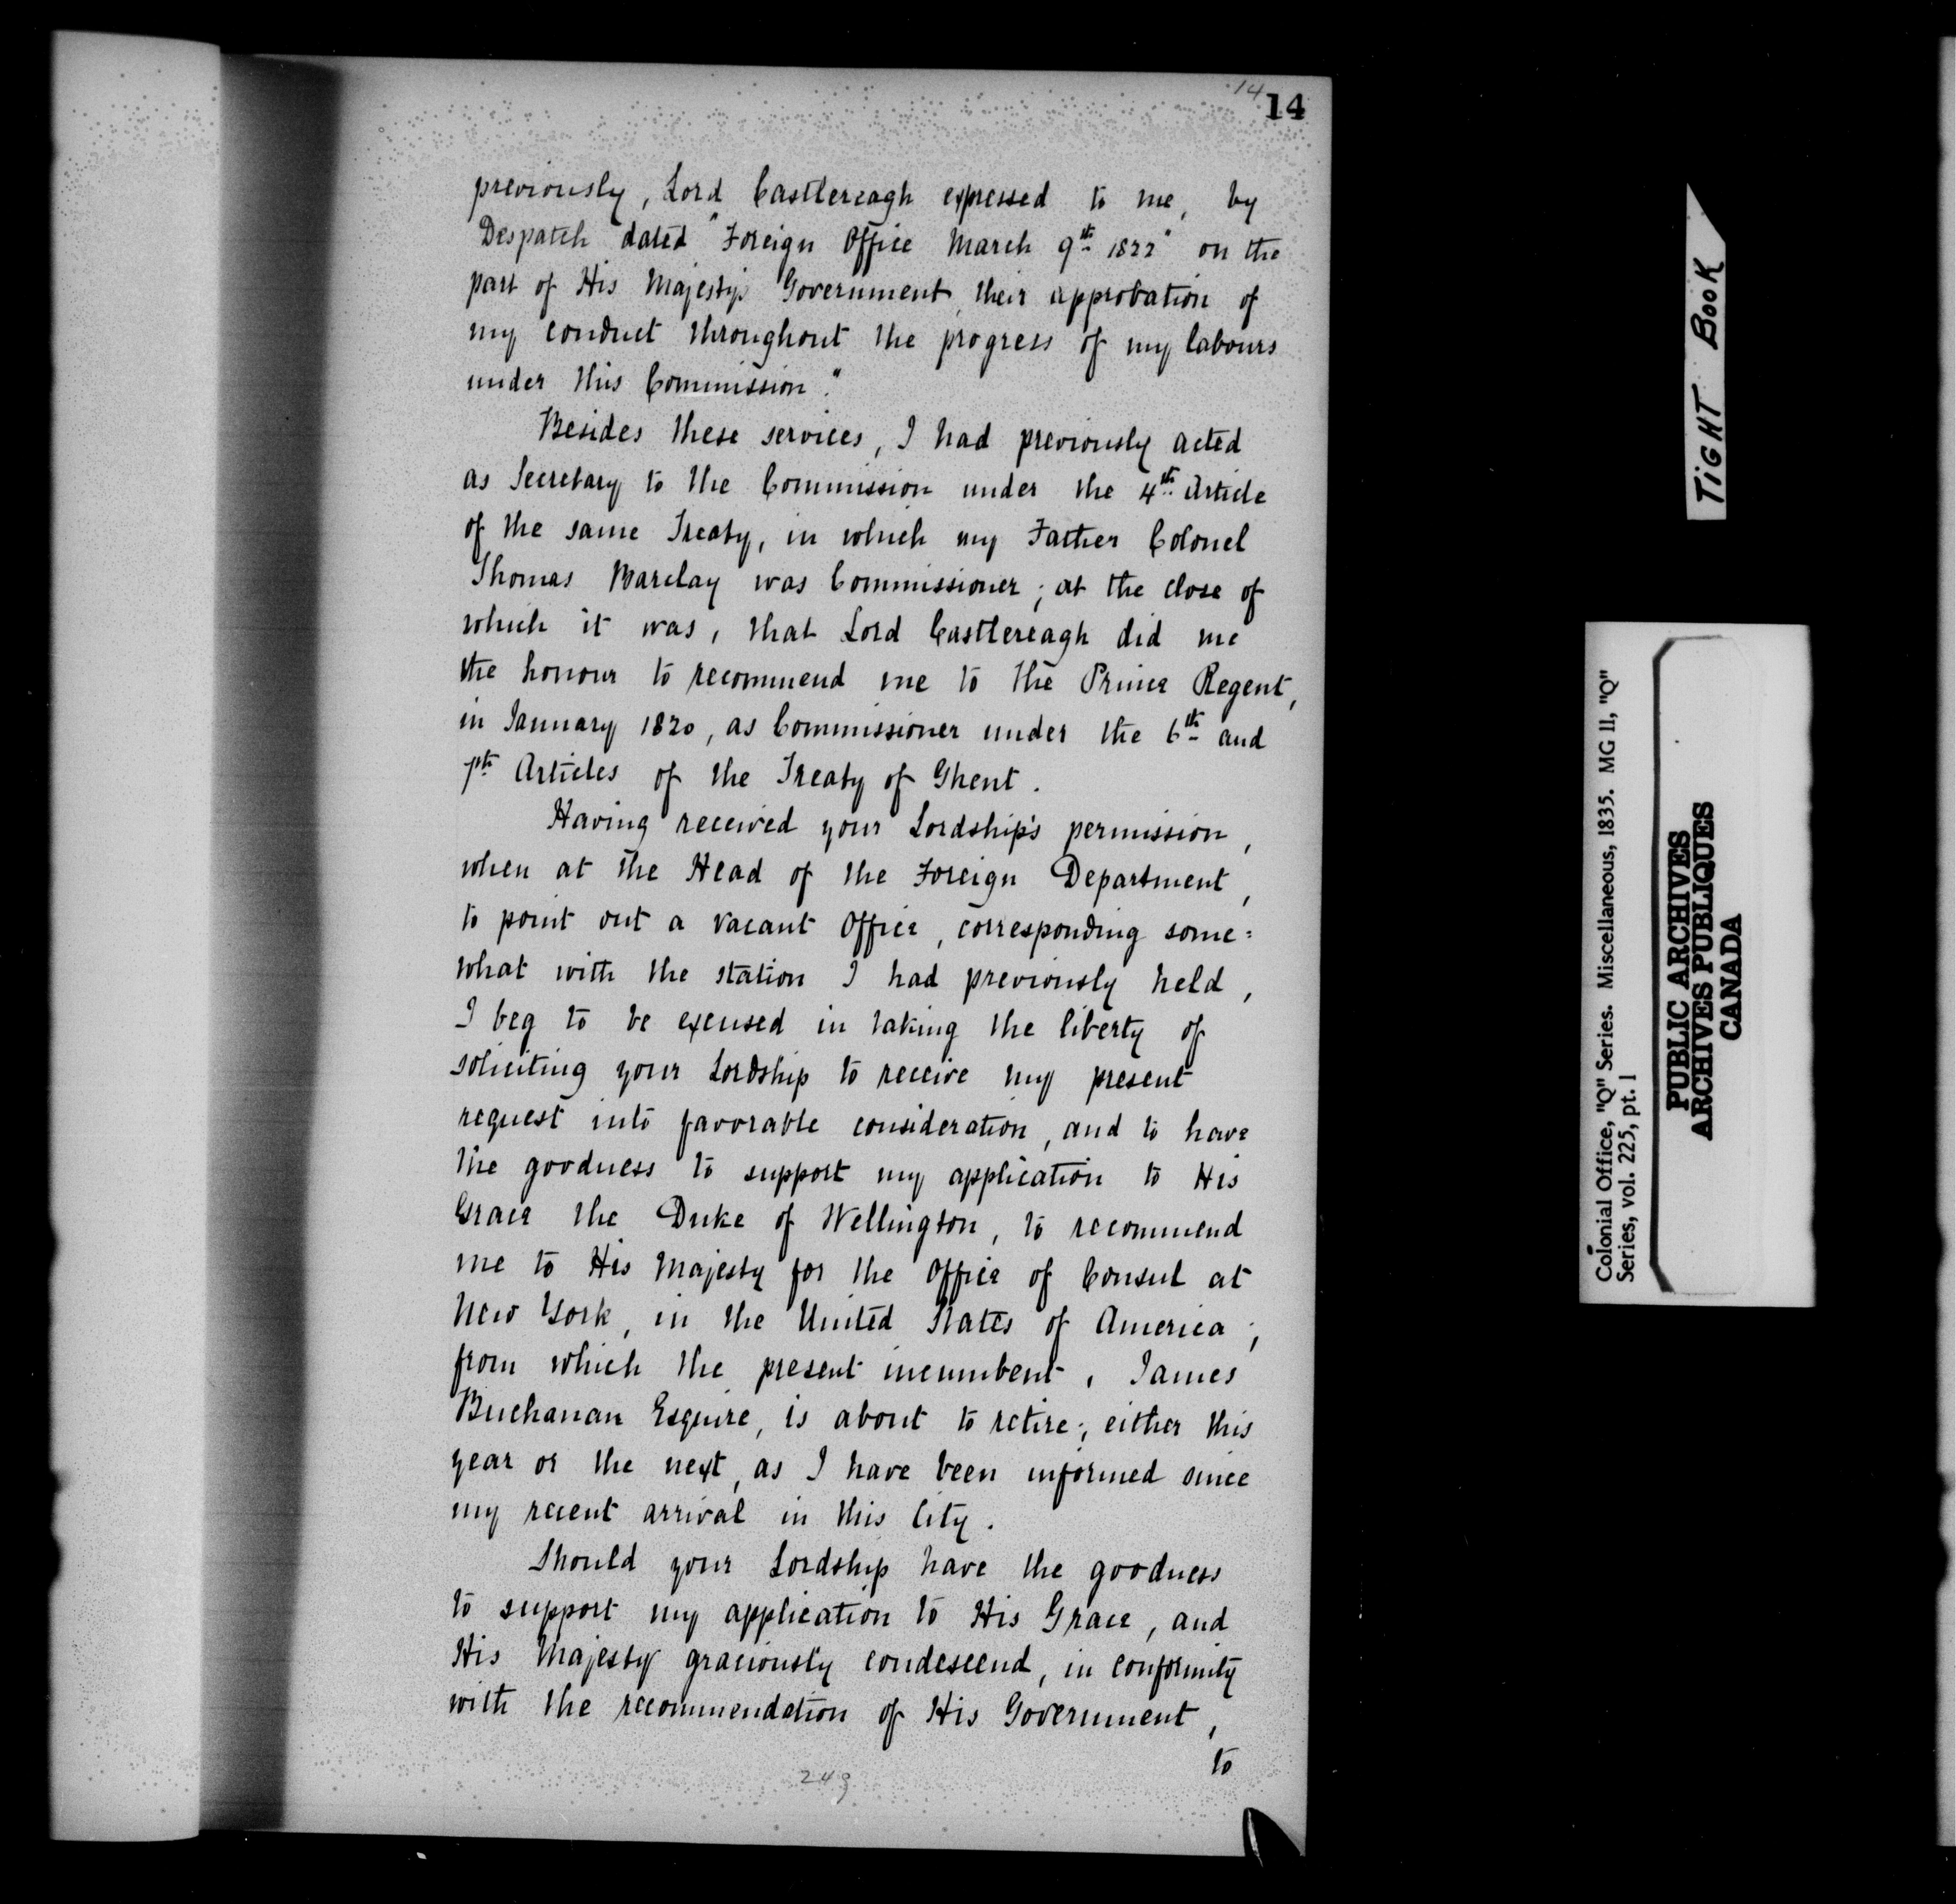 14
14
previously, Lord Castlereagh expressed to me, by
Despatch dated "Foreign Office March 9th 1822" on the
part of His Majesty's Government, their approbation of
my conduct throughout the progress of my labours
under this Commission."
Besides these services, I had previously acted
as Secretary to the Commission under the 4th Article
of the same Treaty, in which my Father Colonel
Thomas Barclay was Commissioner; at the close of
which it was, that Lord Castlereagh did me
the honour to recommend me to the Prince Regent,
in January 1820, as Commissioner under the 6th and
7th Articles of the Treaty of Ghent.
Having received your Lordship's permission,
when at the Head of the Foreign Department,
to point out a vacant Office, corresponding some=
what with the station I had previously held,
I beg to be excused in taking the liberty of
soliciting your Lordship to receive my present
request into favorable consideration, and to have
the goodness to support my application to His
Grace the Duke of Wellington, to recommend
me to His Majesty for the Office of Consul at
New York, in the United States of America;
from which the present incumbent, James
Buchanan Esquire, is about to retire; either this
year or the next, as I have been informed since
my recent arrival in this City.
Should your Lordship have the goodness
to support my application to His Grace, and
His Majesty graciously condescend, in conformity
with the recommendation of His Government,
to
249
TIGHT BOOK
Colonial Office, "Q" Series. Miscellaneous, 1835. MG 11, "Q"
Series, vol. 225, pt. 1
PUBLIC ARCHIVES
ARCHIVES PUBLIQUES
CANADA